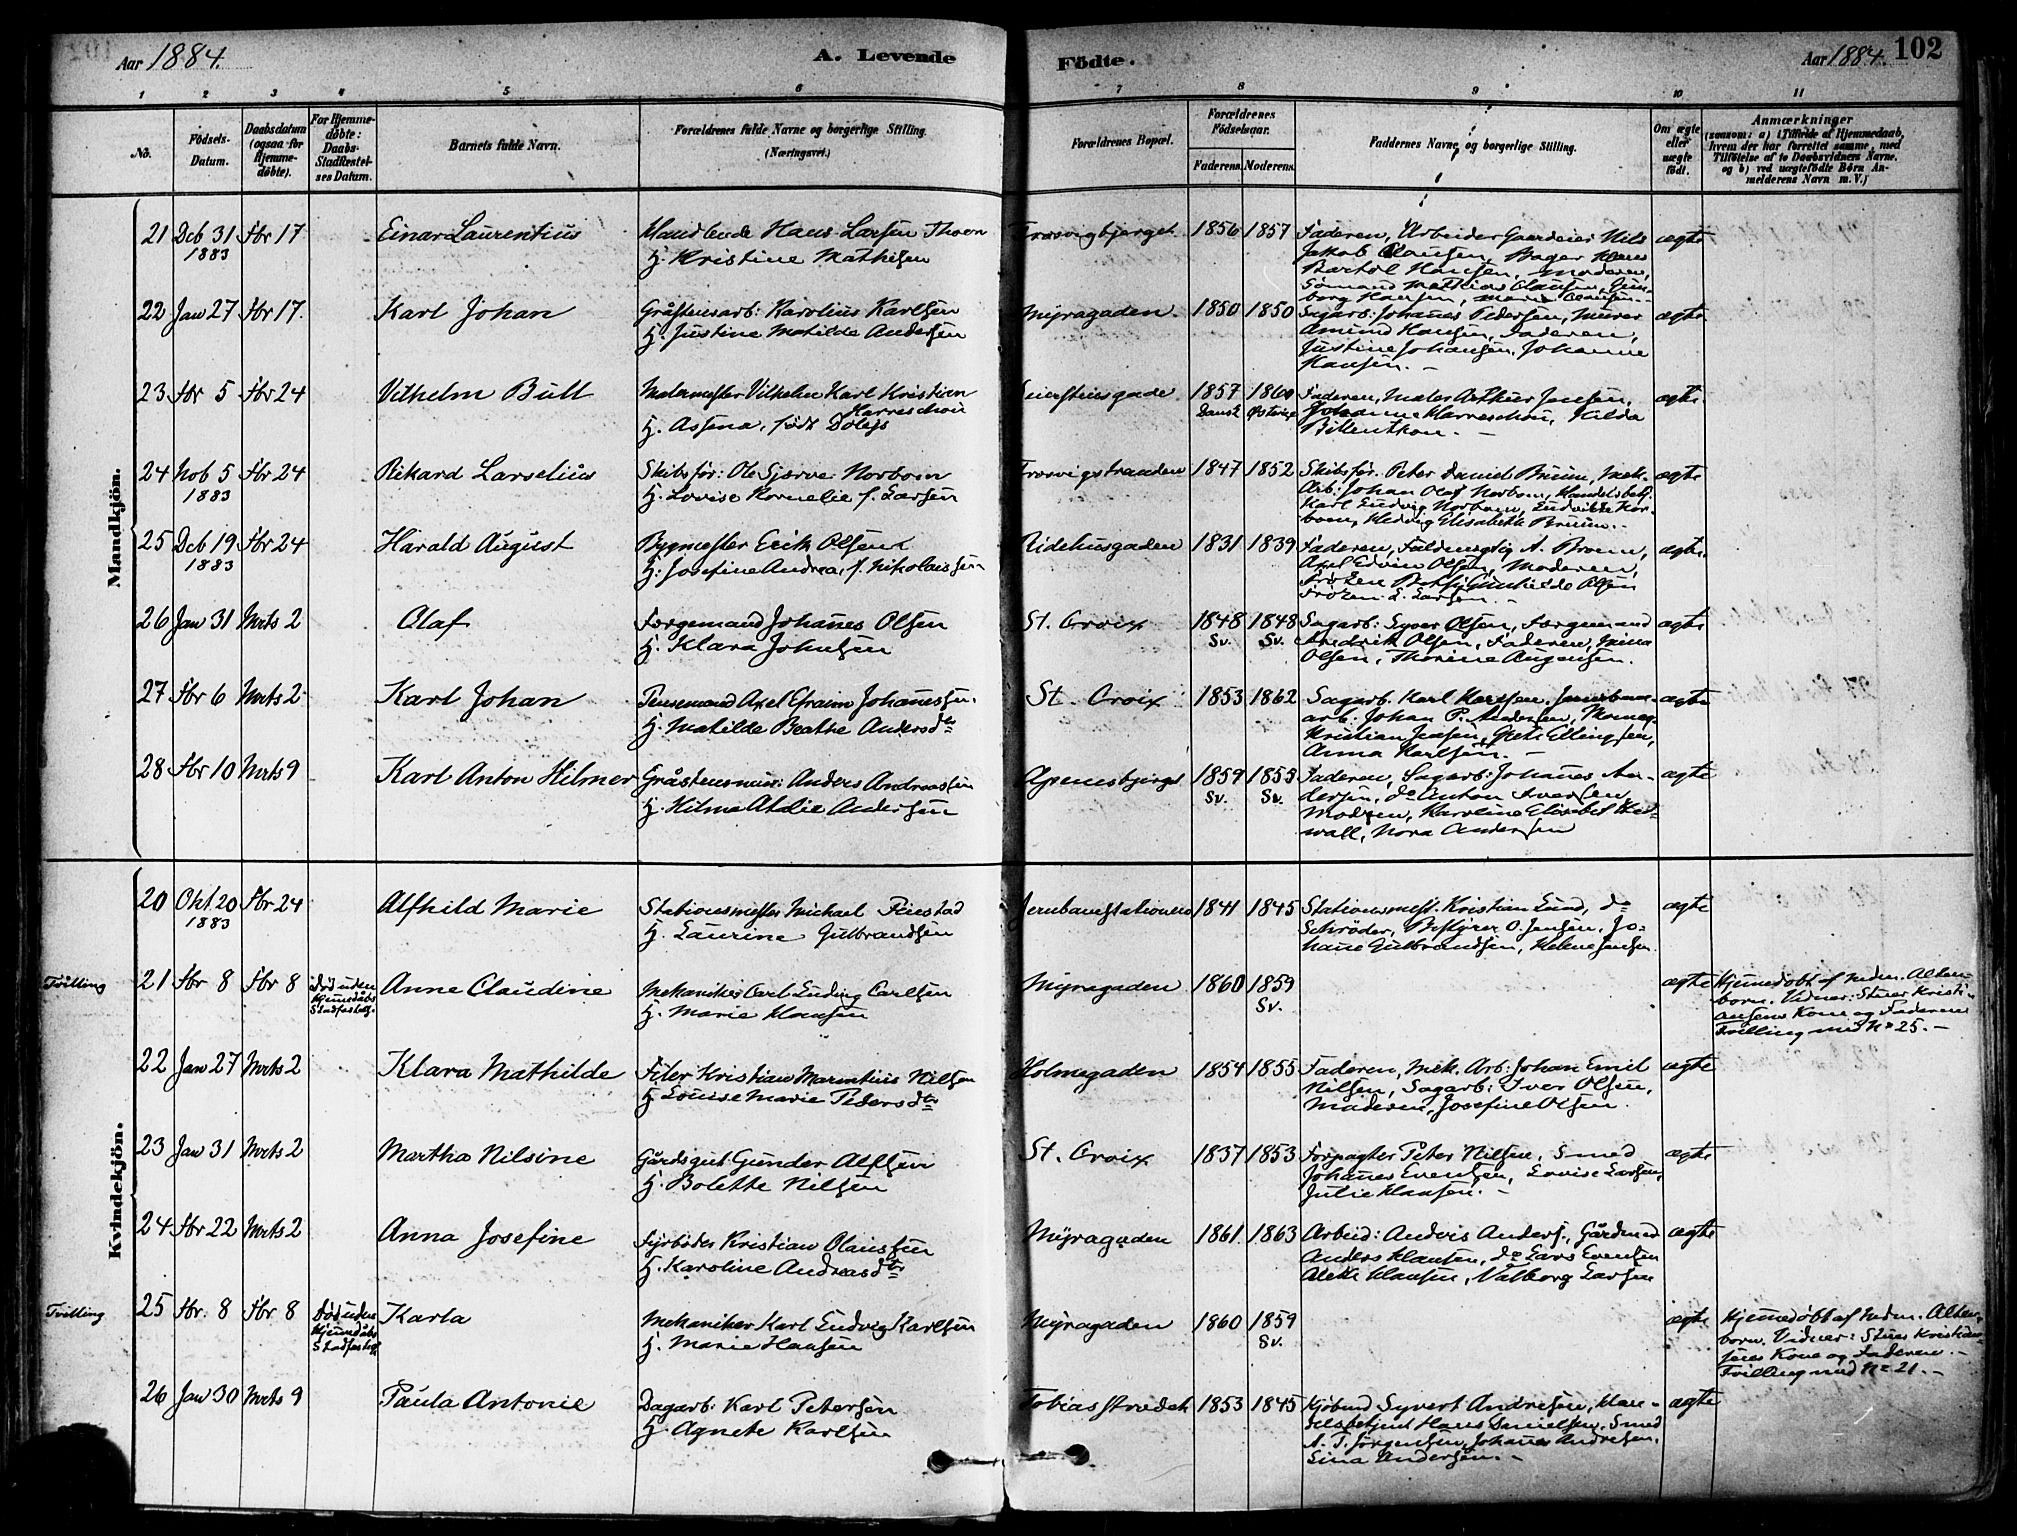 Aar 1884. A. Levende Födte. Aar 1884. 102
1 2 3 4 5 6 7 8 9 10 11
No. Födsels-Datum. Daabsdatum (ogsaa for Hjemmedøbte). For Hjemmedøbte: Daabs-Stadfæstelses Datum. Barnets fulde Navn. Forældrenes fulde Navne og borgerlige Stilling. (Næringsvei.) Forældrenes Bopæl. Forældrenes Fødselsaar. Faderens. Moderens. Faddernes Navne og borgerlige Stilling. Om ægte eller uægte født. Anmærkninger (saasom: a) i Tilfælde af Hjemmedaab, hvem der har forrettet samme, med Tilføielse af to Daabsvidners Navne, og b) ved uægtefödte Börn Anmelderens Navn m. V.)
Mandkjön.
21 Deb 31 Fbr 17 Einar Laurentius Hans Larsen Thoen 1856 1857 Faderen, Arbeider Gaardeier Nils ægte
1883 H. Kristine Mathisen Jakob Clausen, Bager
Bartol Hansen, Moderen,
Sømand Mathias Clausen,
borg Hansen, Marie Clausen.
22 Jan 27 Fbr 17. Karl Johan Gråstensarb: Karolius Karlsen Myragaden. 1850 1850 Sagarb: Johanes Pedersen, Murer ægte
H. Justine Matilde Andersen Amund Hansen, Faderen,
Justine Johansen, Johanne
Hansen. -
23 Fbr 5 Fbr 24 Vilhelm Bull Malermester Vilhelm Karl Kristian 1857 1860 Faderen, Maler Arthur Jensen, ægte
Harreschou Dansk
H. Assena, født Dolejs Johanne Harreschou, Hilda
24 Nob 5 Fbr 24 Rikard Larselius Skibsfør: Ole Norbom Trosvigstranden 1847 1852 Skibsfør. Peter Daniel Bruun, Mek. ægte
1883 H. Lovise Kornelie f. Larsen Arb: Johan Olaf Norbom, Handelsbetj.
Karl Ludvig Norbom, Ludvikke Nor-
bom, Hedvig Elisabeth Bruun. -
25 Deb 19 Fbr 24 Harald August Bygmester Erik Olsen Ridehusgaden 1831 1839 Faderen, Fuldmægtig A. Broun, ægte.
1883 H. Josefine Andrea, f. Nikolaissen Axel Edvin Olsen, Moderen,
Frøken Betsy Gunhilde Olsen
Frøken L. Larsen. -
26 Jan 31 Mrts 2 Olaf Forgemand Johanes Olsen St. Croix 1848 1848 Sagarb: Syver Olsen, Forgemand ægte
H. Klara Johnsen Sv. Sv. Fredrik Olsen, Faderen, Mina
Olsen, Thorine Augensen.
27 Fbr 6 Mrts 2 Karl Johan Axel Efraim Johanessen. St. Croix 1853 1862 Sagarb. Karl Karlsen. Jernbane ægte
H. Matilde Beathe Andersdtr arb: Johan P. Andersen,
Kristian Jensen, Grete Ellingsen,
Anna Karlsen. -
28 Fbr 10 Mrts 9 Karl Anton Hilmer Gråstensmur: Anders Andreassen 1859 1855 Faderen, Sagarb: Johanes An- ægte
H. Hilma Atalie Andersen Sv. Sv. dersen, do Anton Iversen,
Modren, Karoline Elisabet Hed-
wall, Nora Andersen
Kvindekjön.
20 Okt. 20 Fbr 24 Alfhild Marie Stationsmester Michael Riestad Jernbanestationen 1841 1845 Stationsmest. Kristian Lund, do ægte
1883 H. Laurine Gulbrandsen Schrøder, Bestyrer O. Jensen, Jo-
hane Gulbrandsen, Helene Jensen.
Tvilling 21 Fbr 8 Fbr 8 Død uden Hjemmedåbs Stadfæstelse. Anne Claudine Mekaniker Carl Ludvig Carlsen Myragaden 1860 1859 ægte Hjemmedøbt af Mdm. Alten-
H. Marie Hansen Sv. born. Vidner: Stuer Kristi-
ansens Kone og Faderen
Tvilling med No 25. -
22 Jan 27 Mrts 2 Klara Mathilde Filer Kristian Marentius Nilsen Holmegaden 1854 1855 Faderen, Mek. Arb: Johan Emil ægte
H. Louise Marie Pedersdtr Nilsen, Sagarb: Iver Olsen,
Moderen, Josefine Olsen.
23 Jan 31 Mrts 2 Martha Nilsine Gårdsgut Gunder Alfsen St. Croix 1837 1853 Forpagter Peter Nilsen, Smed ægte
H. Bolette Nilsen Johanes Evensen, Lovise Larsen,
Julie Hansen. -
24 Fbr 22 Mrts 2 Anna Josefine Fyrbøder Kristian Olaussen Myragaden 1861. 1863 Arbeid: Anders., Gårdmd ægte
H. Karoline Andreasdtr Anders Hansen, do Lars Evensen
Hansen, Valborg Larsen
Tvilling 25 Fbr. 8 Fbr 8 Død uden Hjemmedåbs Stadfæstelse Karla Mekaniker Karl Ludvig Karlsen Myragaden 1860 1859 ægte Hjemmedøbt af Mdm. Alten-
H. Marie Hansen Sv. born. Vidner: Stuer Kristian-
sens Kone og Faderen. -
Tvilling med No 21. -
26 Jan 30 Mrts 9 Paula Antonie Dagarb: Karl Petersen Tobiasstrædet 1853 1845 Kjøbmd Syvert Andresen, Han- ægte
H. Agnete Karlsen delsbetjent Hans Danielsen, Smed
A. T. Jørgensen, Johanes Andresen.
Lina Andersen. -